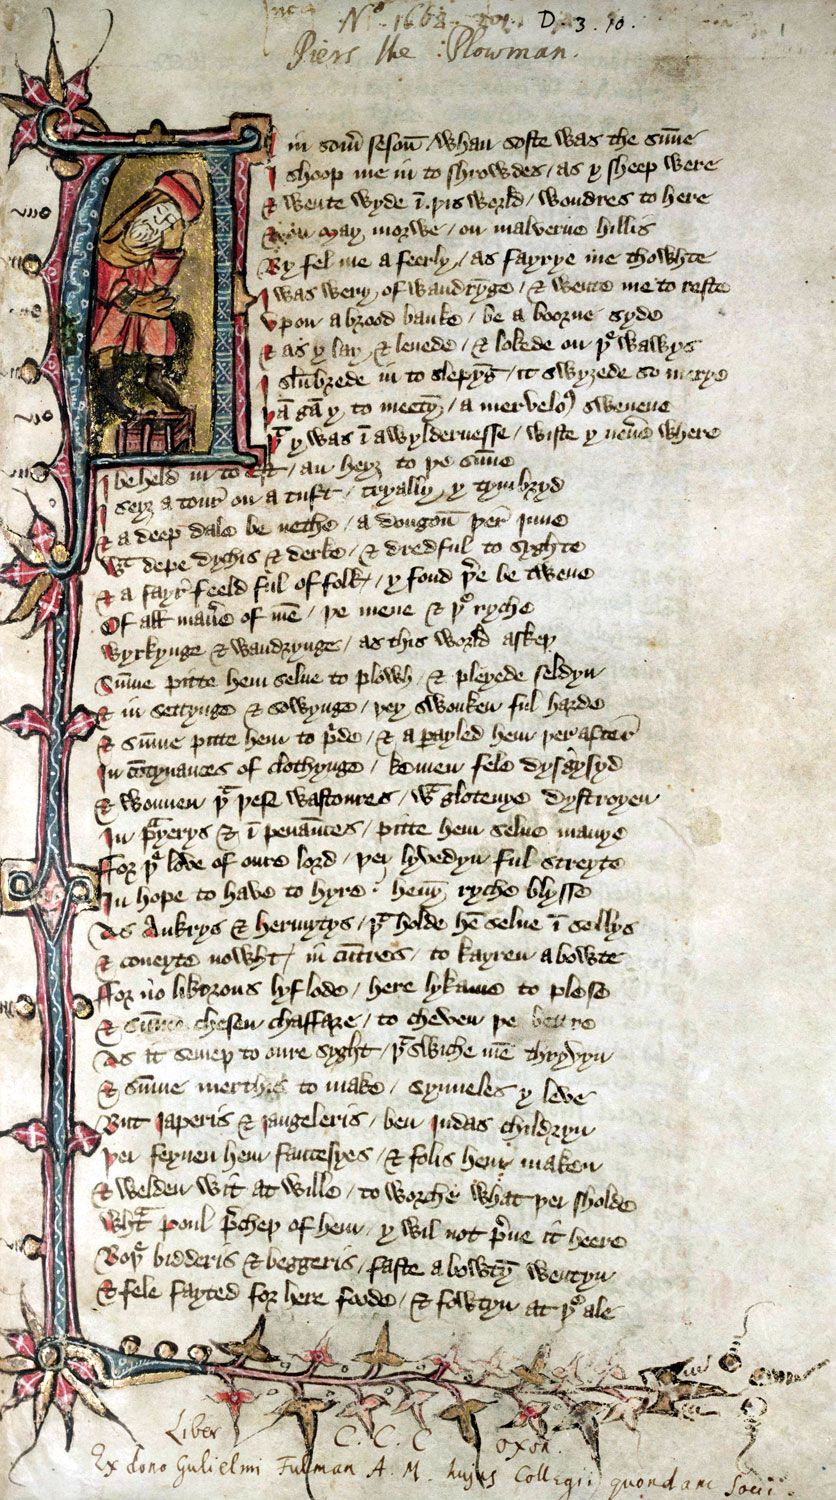 Nº 1662 D. 3. 10.
Piers the Plowman.
In som̄ sesoū / whan softe was the sūne
I shoop me in to shrowdes / as y sheep were
& wente wyde ī þis world / wondres to here
May morwe / on malverne hillis
By fel me a feerly / as fayrye me thowhte
I was wery of wandrȳge / & wente me to reste
Vpon a brood banke / be a boorne syde
& as y lay & lenede / & lokede on þe wawys
I slūbrede in to slepȳg / it swyȝede so merye
Þā gā y to meetȳ / a mervelo9 swevene
Þt y was ī a wyldernesse / wiste y nev̄e where
I be held in to est / an heyȝ to þe sūne
I seyȝ a tour on a tuft / tryally y tymbryd
& a deep dale be nethe / a dongoū þer inne
Wt depe dychis & derke / & dredful to syghte
& a fayr feeld ful of folk / y fond þ̄e be twene
Of all man̄e of mē / þe mene & þe ryche
Wyrkynge & wandrynge / as this world askeþ
Sūme pitte hem selue to plowh / & pleyede seldyn
& in settynge & sowynge / þey swonken ful harde
& sūme pitte hem to p̄de / & a payled hem þer after
In cōtynances of clothynge / kemen fele dysgysyd
& wonnen þt þese wastoures / wt glotenye dystroyen
In p̄yerys & ī penaūces / pitte hem selue manye
Ffor þe love of oure lord / þei lyvedyn ful streyte
In hope to have to hyre / hevenȳ ryche blysse
As Ankrys & hermytys / þt holde hē selue ī sellys
& coueyte nowht / in cūtres / to kayren abowte
Ffor no likerous lyflode / here lykame to plese
& sūme chesen chaffare / to cheven þe bettre
As it semeþ to oure syght / þt swiche mē thryvyn
& sūme merthis to make / synneles y leve
But iaperis & iangeleris / ben iudas childryn
Þei feynen hem fantesyes / & folis hem maken
& welden wit at wille / to worche what þei sholde
What poul p̄cheþ of hem / y wil not p̄ue it heere
bidderis & beggeris / faste abowtȳ wentyn
& fele fayted for here foode / & fowtyn at þe ale
Liber C. C. C oxon.
Ex dono Gulielmi Fulman A. M. hujus Collegii quondam Socii.